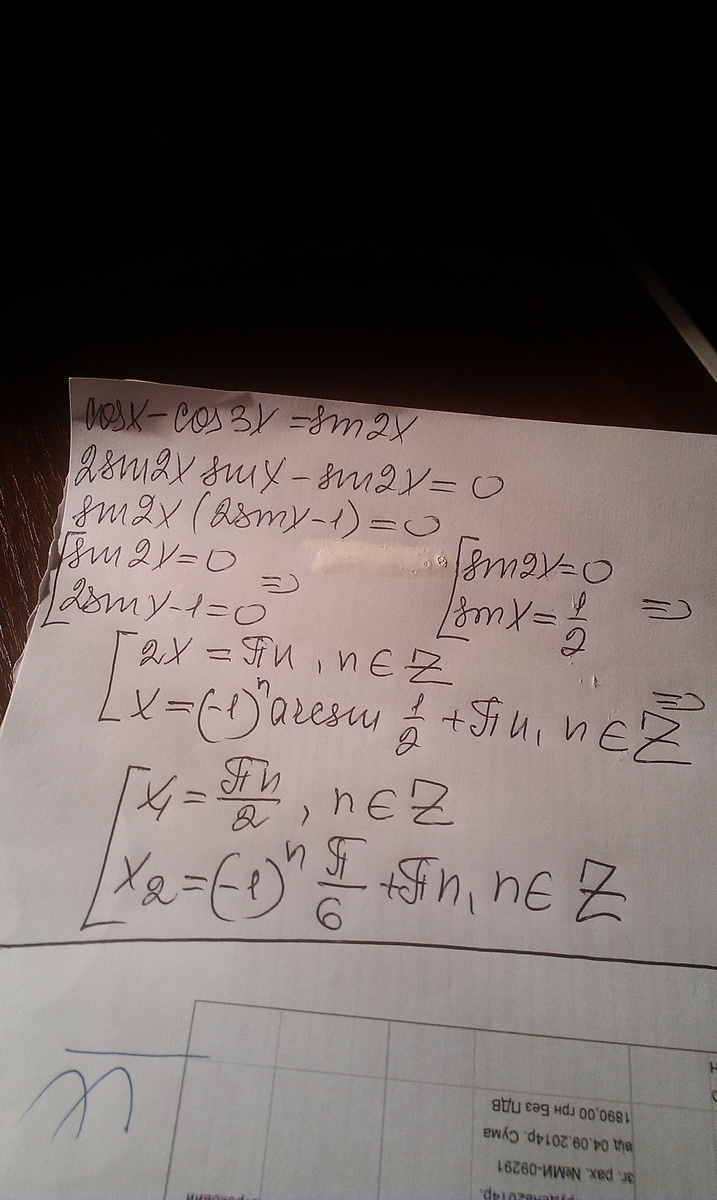 cosx - cos3x = sin2x
2sin2x sinx - sin2x = 0
sin2x (2sinx - 1) = 0
[ sin2x = 0
2sinx - 1 = 0 ⇒
[ sin2x = 0
sinx = 1/2 ⇒
[ 2x = πn, n ∈ Z
x = (-1)ⁿ arcsin 1/2 + πn, n ∈ Z ⇒
[ x₁ = πn/2, n ∈ Z
x₂ = (-1)ⁿ π/6 + πn, n ∈ Z
1890,00 грн Без ПДВ
від 04.09.2014р. Сума
зг. рах. №МИ-09291